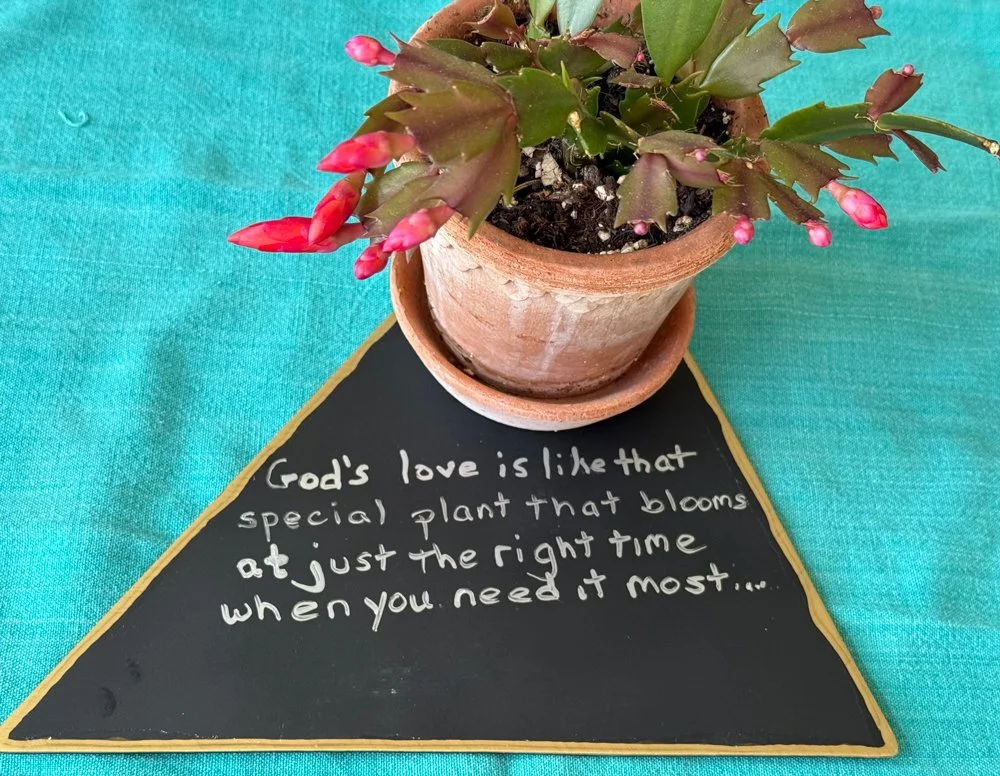 God's love is like that
special plant that blooms
at just the right time
when you need it most...